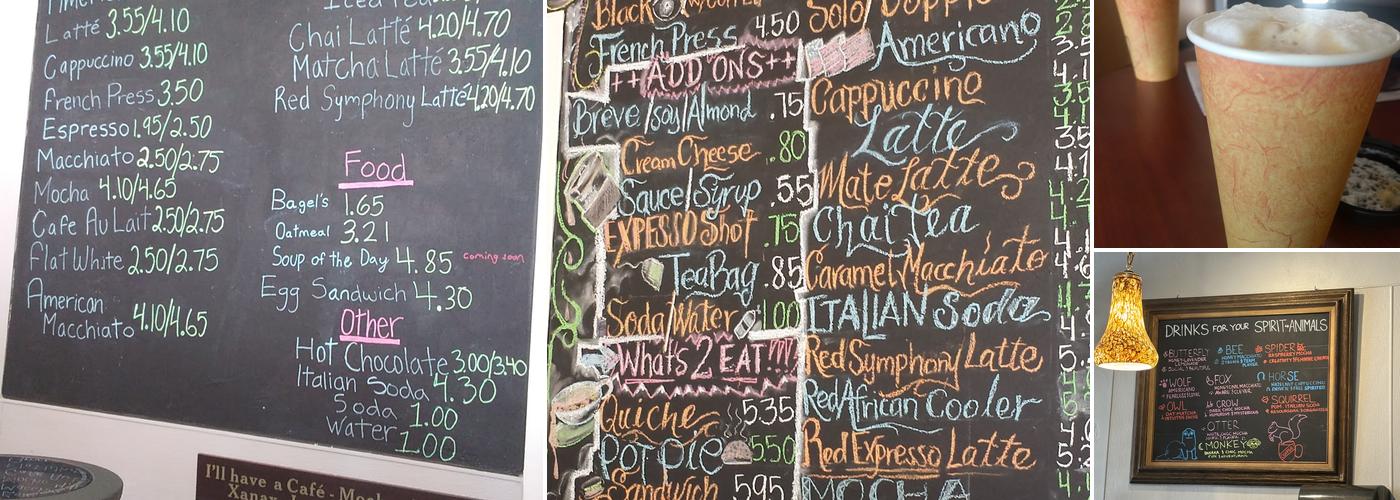 Latté 3.55/4.10
Cappuccino 3.55/4.10
French Press 3.50
Espresso 1.95/2.50
Macchiato 2.50/2.75
Mocha 4.10/4.65
Cafe Au Lait 2.50/2.75
Flat White 2.50/2.75
American
Macchiato 4.10/4.65
Iced Tea
Chai Latté 4.20/4.70
Matcha Latté 3.55/4.10
Red Symphony Latté 4.20/4.70
Food
Bagel's 1.65
Oatmeal 3.21
Soup of the Day 4.85 coming soon
Egg Sandwich 4.30
Other
Hot Chocolate 3.00/3.40
Italian Soda 4.30
Soda 1.00
Water 1.00
I'll have a Café - Moc
Xanax
Black
French Press 4.50
++ADD ONS++
Breve/Soy/Almond .75
Cream Cheese .80
Sauce/Syrup .55
EXPESSO Shot .75
TeaBag .85
Soda/Water 1.00
What's 2 EAT!!!
Quiche 5.35
Pot pie 5.50
Sandwich 5.95
Solo/Doppio
Americano
Cappuccino
Latte
Mate Latte
Chai Tea
Caramel Macchiato
ITALIAN Soda
Red Symphony Latte
Red African Cooler
Red Expresso Latte
MOCHA
DRINKS FOR YOUR SPIRIT-ANIMALS
BUTTERFLY
BEE
SPIDER
RASPBERRY MOCHA
WOLF
AMERICANO
FOX
HORSE
OWL
CROW
DARK CHOC MOCHA
SQUIRREL
OTTER
WHITE CHOC MOCHA
MONKEY